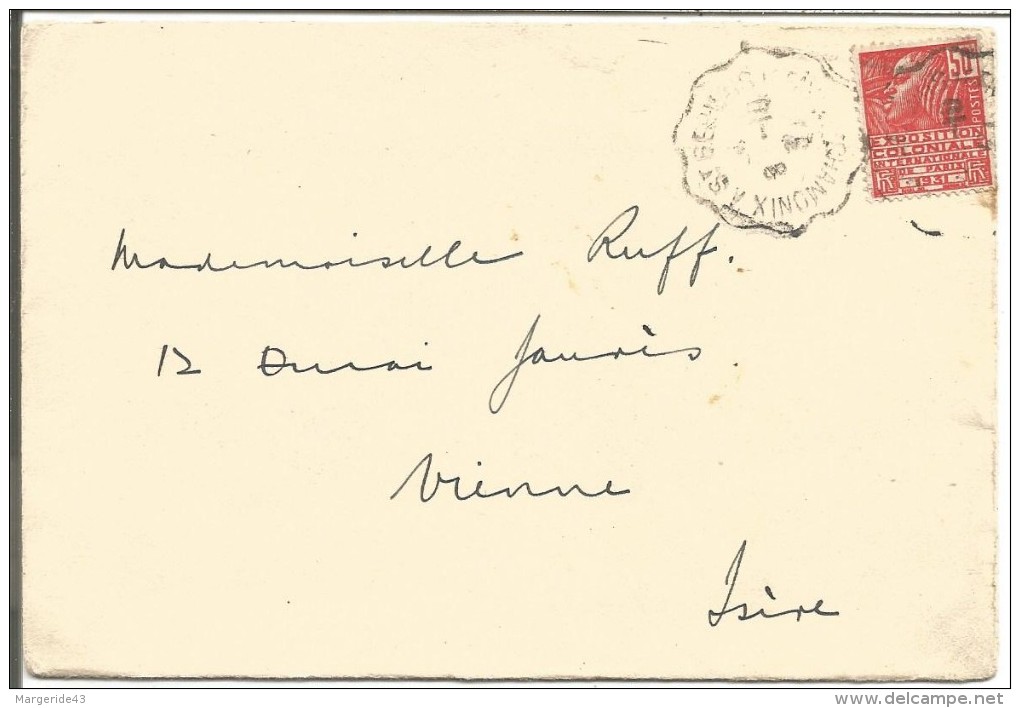 CHAMONIX A ST GERVAIS
50
POSTES
EXPOSITION
COLONIALE
INTERNATIONALE
DE PARIS
1931
Mademoiselle Ruff.
12 Quai Jaurès.
Vienne
Isère
Margeride43
delcampe.net